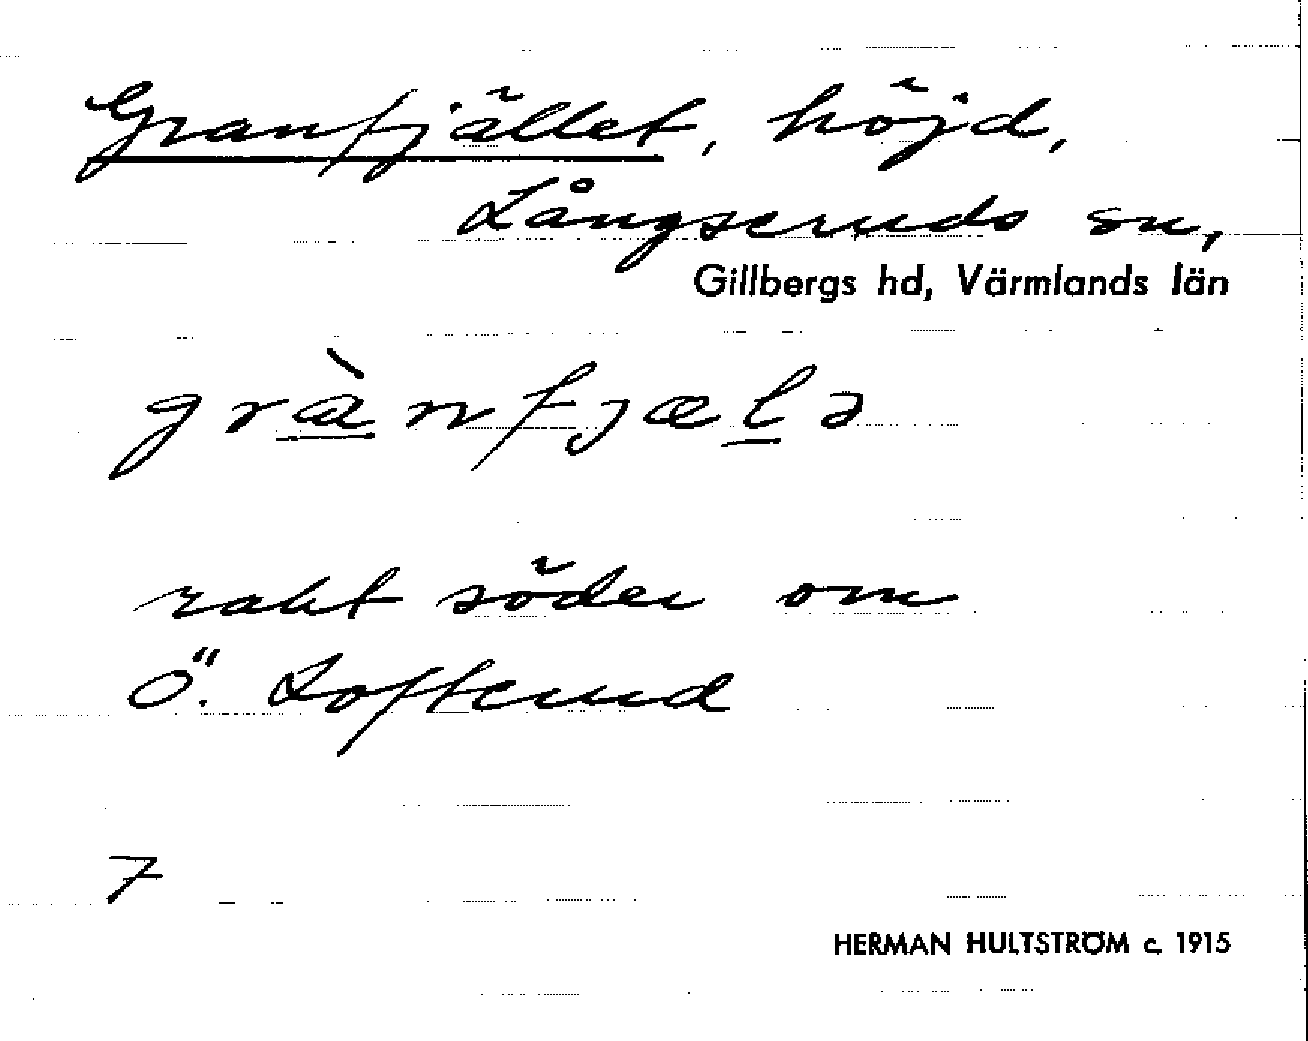 Granfjället, höjd,
Långseruds sn,
Gillbergs hd, Värmlands län
grànfjælə
rakt söder om
Ö. Lofterud
7
HERMAN HULTSTRÖM c. 1915